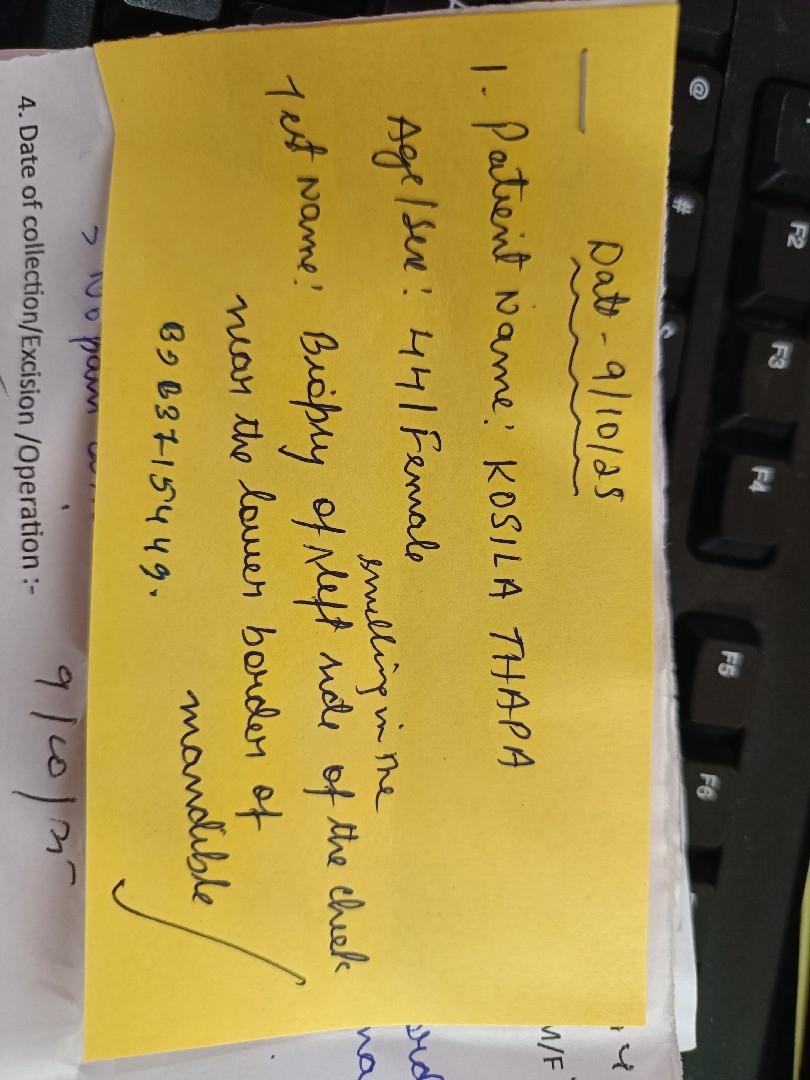 Date - 9/10/25
1. Patient Name: KOSILA THAPA
Age/Sex: 44/Female
swelling in the
Test Name: Biopsy of left side of the cheek
near the lower border of
mandible
> No pain
4. Date of collection/Excision /Operation :-
9/10/25
M/F
@
#
F2
F3
F4
F5
F6